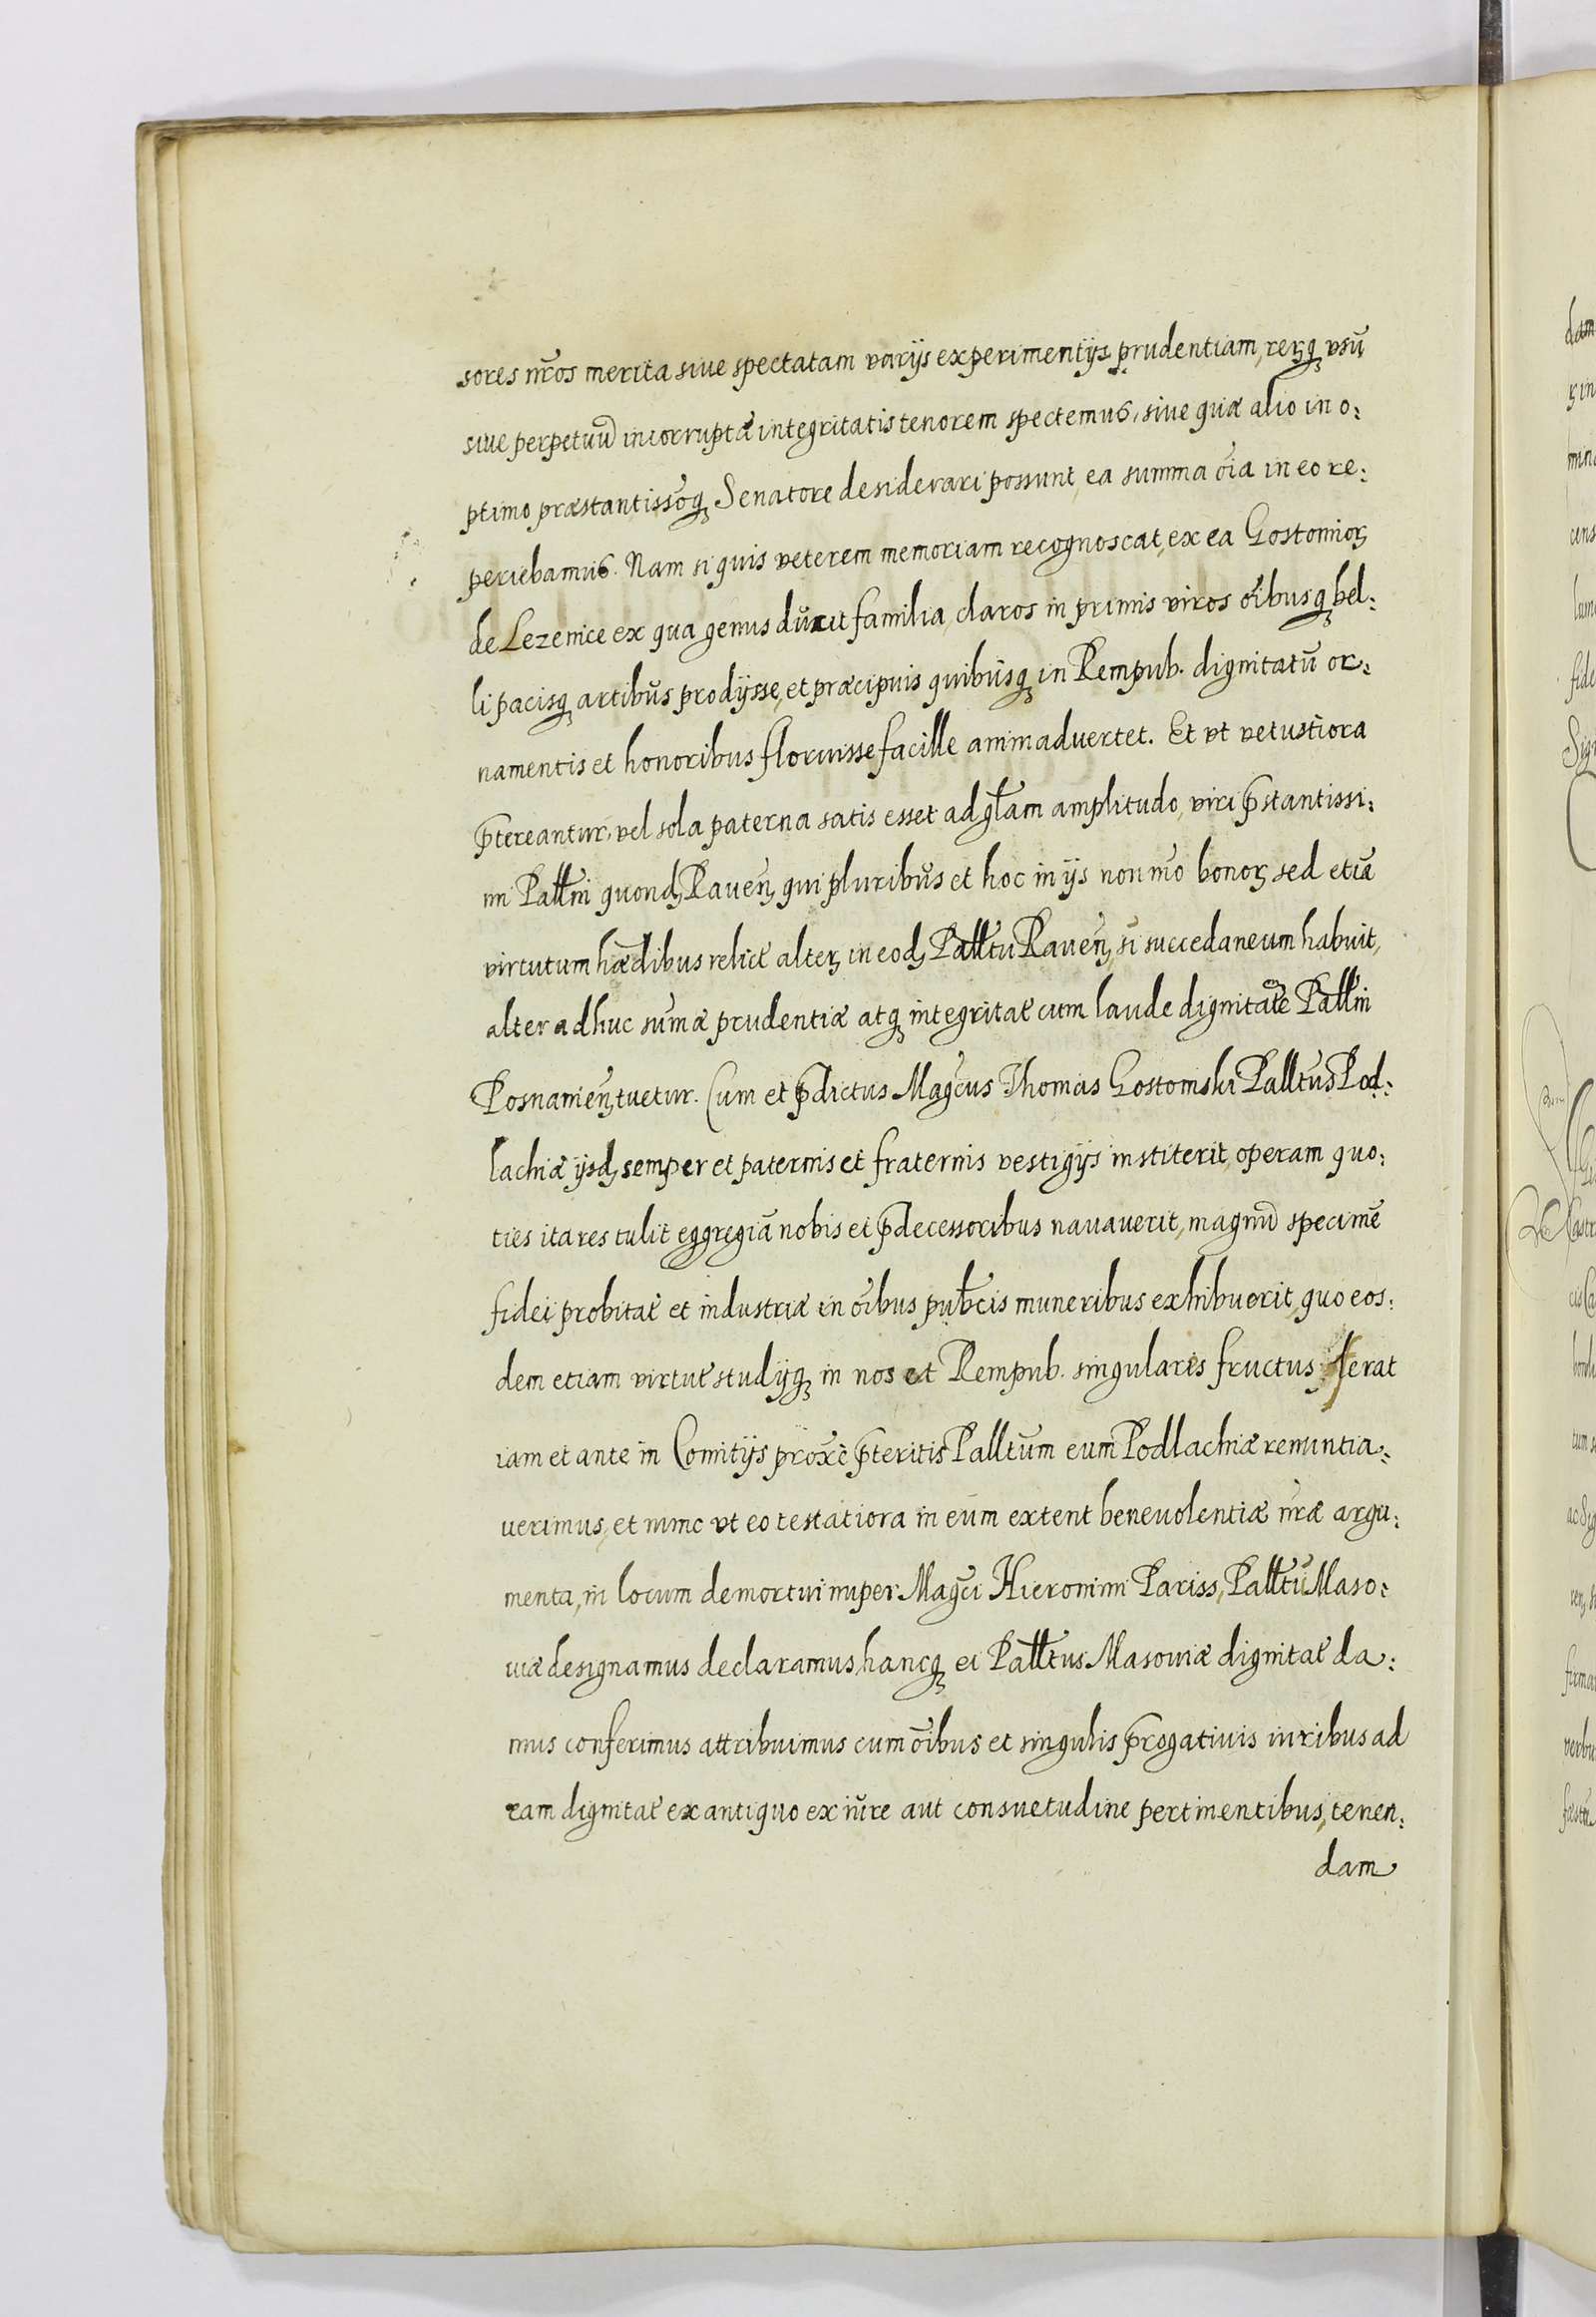 sores nr̃os merita siue spectatam varijs experimentijs prudentiam, rerꝫq̃ vsũ
siue perpetuũ incorruptæ integritatis tenorem spectemus, siue quæ alio in o:
ptimo præstantissoq̃ Senatore desiderari possunt, ea summa oĩa in eo re:
periebamus. Nam si quis veterem memoriam recognoscat, ex ea Gostomiorꝫ
de Lezenice ex qua genus ducit familia, claros in primis viros oĩbusq̃ bel:
li pacisq̃ artibus prodijsse, et præcipuis quibusq̃ in Rempub. dignitatũ or:
namentis et honoribus floruisse facille animaduertet. Et vt vetustiora
p̃tereantur, vel sola paterna satis esset ad gl̃am amplitudo, viri p̃stantissi:
mi Pall̃ni quondꝫ Rauenꝫ, qui pluribus et hoc in ijs non mõ bonorꝫ sed etiã
virtutum hædibus relict̃ alterꝫ in eodꝫ Pall̃tu Rauenꝫ, si succedaneum habuit,
alter adhuc sum̃æ prudentiæ atq̃ integritat̃ cum laude dignitatẽ Pall̃ni
Posnamienꝫ tuetur. Cum et p̃dictus Mag̃cus Thomas Gostomski Pall̃tus Pod:
lachiæ ijsdꝫ semper et paternis et fraternis vestigijs institerit, operam quo:
ties ita res tulit eggregiã nobis et p̃decessoribus nauauerit, magnũ specimẽ
fidei probitat̃ et industriæ in oĩbus publ̃cis muneribus exhibuerit, quo eos:
dem etiam virtut̃ studijq̃ in nos et Rempub. singularis fructus ferat
iam et ante in Comitijs prox̃e p̃teritis Pall̃tum eum Podlachiæ renuntia:
uerimus, et nunc vt eo testatiora in eum extent beneuolentiæ nr̃æ argu:
menta, in locum demortui nuper Mag̃ci Hieronimi Pariss, Pall̃tũ Maso:
uiæ designamus declaramus, hancq̃ ei Pall̃tus Masouiæ dignitat̃ da:
mus conferimus attribuimus cum oĩbus et singulis p̃rogatiuis iuribus ad
eam dignitat̃ ex antiquo ex iure aut consuetudine pertinentibus, tenen:
dam